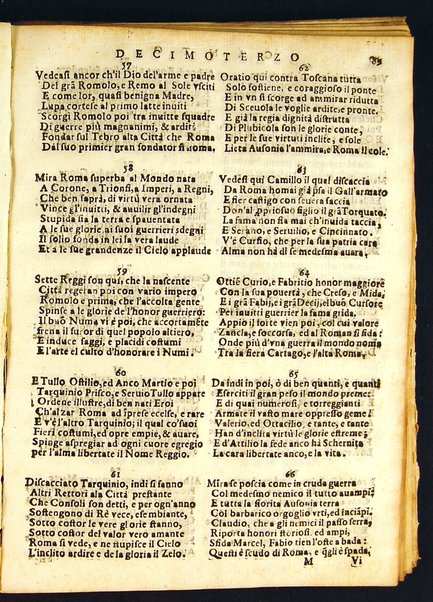 DECIMOTERZO
83
57
Vedeasi ancor ch'il Dio del'arme e padre
Del grã Romolo, e Remo al Sole vsciti
E come lor, quasi benigna Madre,
Lupa cortese al primo latte inuiti
Scorgi Romolo poi tra inuitte squadre
Di guerre più magnanimi, & arditi
Fondar sul Tebro alta Città che Roma
Dal suo primier gran fondator si noma.
58
Mira Roma superba al Mondo nata
A Corone, a Trionfi, a Imperi, a Regni,
Che ben saprà, di virtù vera ornata
Vince gl'inuitti, & auuilir gl'indegni
Stupida sia la terra e spauentata
A le sue glorie ai suoi guerrieri sdegni
Il solio fonda in lei la vera laude
Et a le sue grandenze il Cielo applaude
59
Sette Reggi son qui, che la nascente
Città regetan poi con vario impero
Romolo e prima, che l'accolta gente
Spinse a le glorie de l'honor guerriero:
Il buõ Numa vi è poi, che accortamẽte
frena il furor di quel popolo altero,
E induce saggi, e placidi costumi
E l'arte el culto d'honorare i Numi.
60
E Tullo Ostilio, ed Anco Martio e poi
Tarquinio Prisco, e Seruio Tullo appare
Ordene illustre, di ben nati Eroi
Ch'alzar Roma ad sprese eccelse, e rare
E v'è l'altro Tarquinio; il qual co'suoi
Fieri costumi, ed opre empie, & auare,
Spinge a pregiar ad ogni cuore egregio
per l'alma libertate il Nome Reggio.
61
Discacciato Tarquinio, indi si fanno
Altri Rettori ala Città prestante
Che Consoli son detti, e per ogn'anno
Sostengono di Rè vece, esembiante,
Sotto costor le vere glorie stanno,
Sotto costor del valor vero amante
Roma si vede, e ne stupisce il Cielo
L'inclito ardire e de la gloria il Zelo.
62
Oratio qui contra Toscana tutta
Solo sostiene, e coraggioso il ponte
E in vn si scorge ad ammirar ridutta
Di Sceuola le voglie ardite, e pronte.
E già la regia dignità distrutta
Di Publicola son le glorie conte,
E per le sue virtuti inclite, e sole
Lieta Ausonia l'ammira, e Roma il cole.
63
Vedesi qui Camillo il qual discaccia
Da Roma homai già presa il Gall'armato
E fier castigo con seuera faccia
Don'al proprio suo figlio il grã Torquato.
La fama non è mai ch'inuida taccia,
E Serano, e Seruilio, e Cincinnato,
V'è Curtio, che per la sua patria cara
Alma non hà di se medesma auara.
64
Ottiẽ Curio, e Fabritio honor maggiore
Con la sua pouertà, che Creso, e Mida,
Ei grà Fabij, ei grà Decij, el buõ Cursore
Per inuitti guerrier la fama grida.
Appio il forte vien poi, col cui valore
Zancla, e soccorsa, ed al Roman si fida:
Onde più d'vna guerra il mondo noma
Tra la fiera Cartago, e l'alta Roma,
65
Da indi in poi, ò di ben quanti, e quanti
Eserciti il gran peso il mondo preme:
E di quai numerosi, e torreggianti
Armate il vasto mare oppresso geme!
Valerio, ed Ottacilio, e tante, e tante
Han d'inclita virtù le glorie estreme;
E d'Attilio la fede anco hà Schernita
La cara libertate anco, e la vita.
66
Mira se poscia come in cruda guerra
Col medesmo nemico il tutto auuampi:
E tutta la fiorita Ausonia terra
Col barbarico orgoglio vrti, ed inciãpi.
Claudio, che a gli nemici il passo serra,
Riporta honori fterori, ed ampi,
Sfida Marcel, Fabio tien l'oste a bada:
Questi è scudo di Roma, e q̃gli è spada,
M Vi